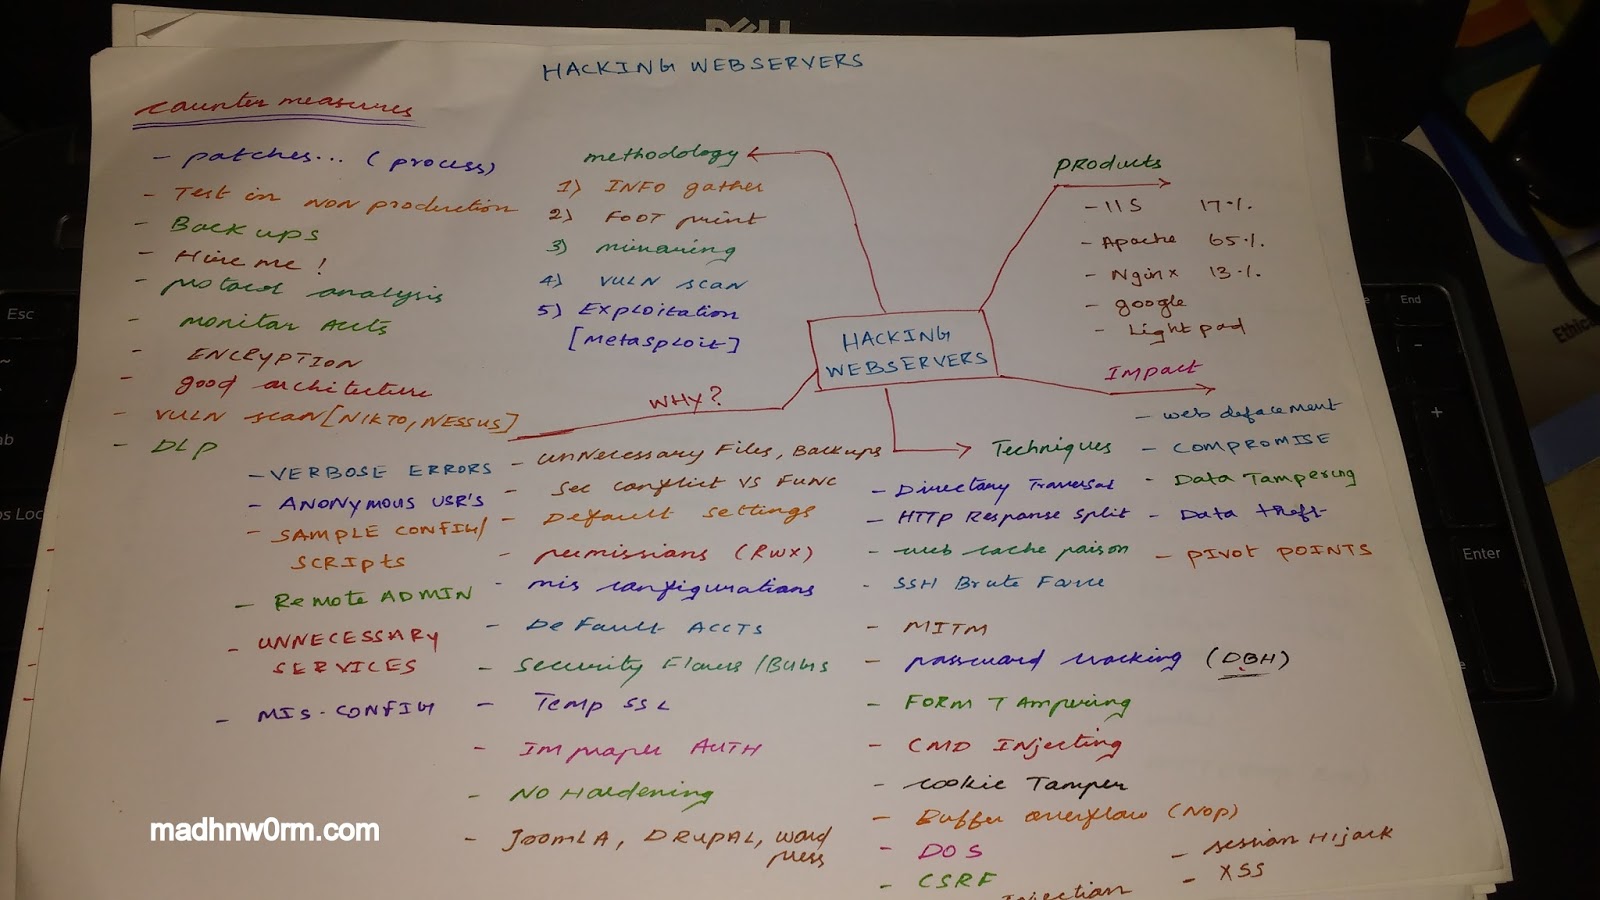 DELL
HACKING WEBSERVERS
counter measures
- patches... (process)
- Test in NON production
- Back ups
- Hire me!
- protocol analysis
- monitor Accts
- ENCRYPTION
- good architecture
- VULN scan [NIKTO, NESSUS]
- DLP
methodology
1) INFO gather
2) FOOT print
3) mirroring
4) VULN scan
5) Exploitation
[metasploit]
products
- IIS 17%
- Apache 65%
- Nginx 13%
- google
- Light pad
HACKING
WEBSERVERS
Impact
- web defacement
- COMPROMISE
- Data Tampering
- Data theft
- pivot POINTS
WHY?
- unnecessary Files, Backups
- Sec conflict VS FUNC
- Default settings
- permissions (RWX)
- mis configurations
- DeFault ACCTS
- Security Flaws/Bugs
- Temp SSL
- Improper AUTH
- NO Hardening
- JoomLA, DRUPAL, word
press
- VERBOSE ERRORS
- ANONYMOUS USR'S
- SAMPLE CONFIG/
SCRIPTS
- Remote ADMIN
- UNNECESSARY
SERVICES
- MIS-CONFIG
Techniques
- Directory Traversal
- HTTP Response Split
- web cache poison
- SSH Brute Force
- MITM
- password cracking (DBH)
- FORM TAmpering
- CMD INjecting
- cookie Tamper
- Buffer overflow (Nop)
- DOS
- CSRF
- session HIjack
- XSS
Injection
madhnw0rm.com
Esc
End
Enter
+
-
~